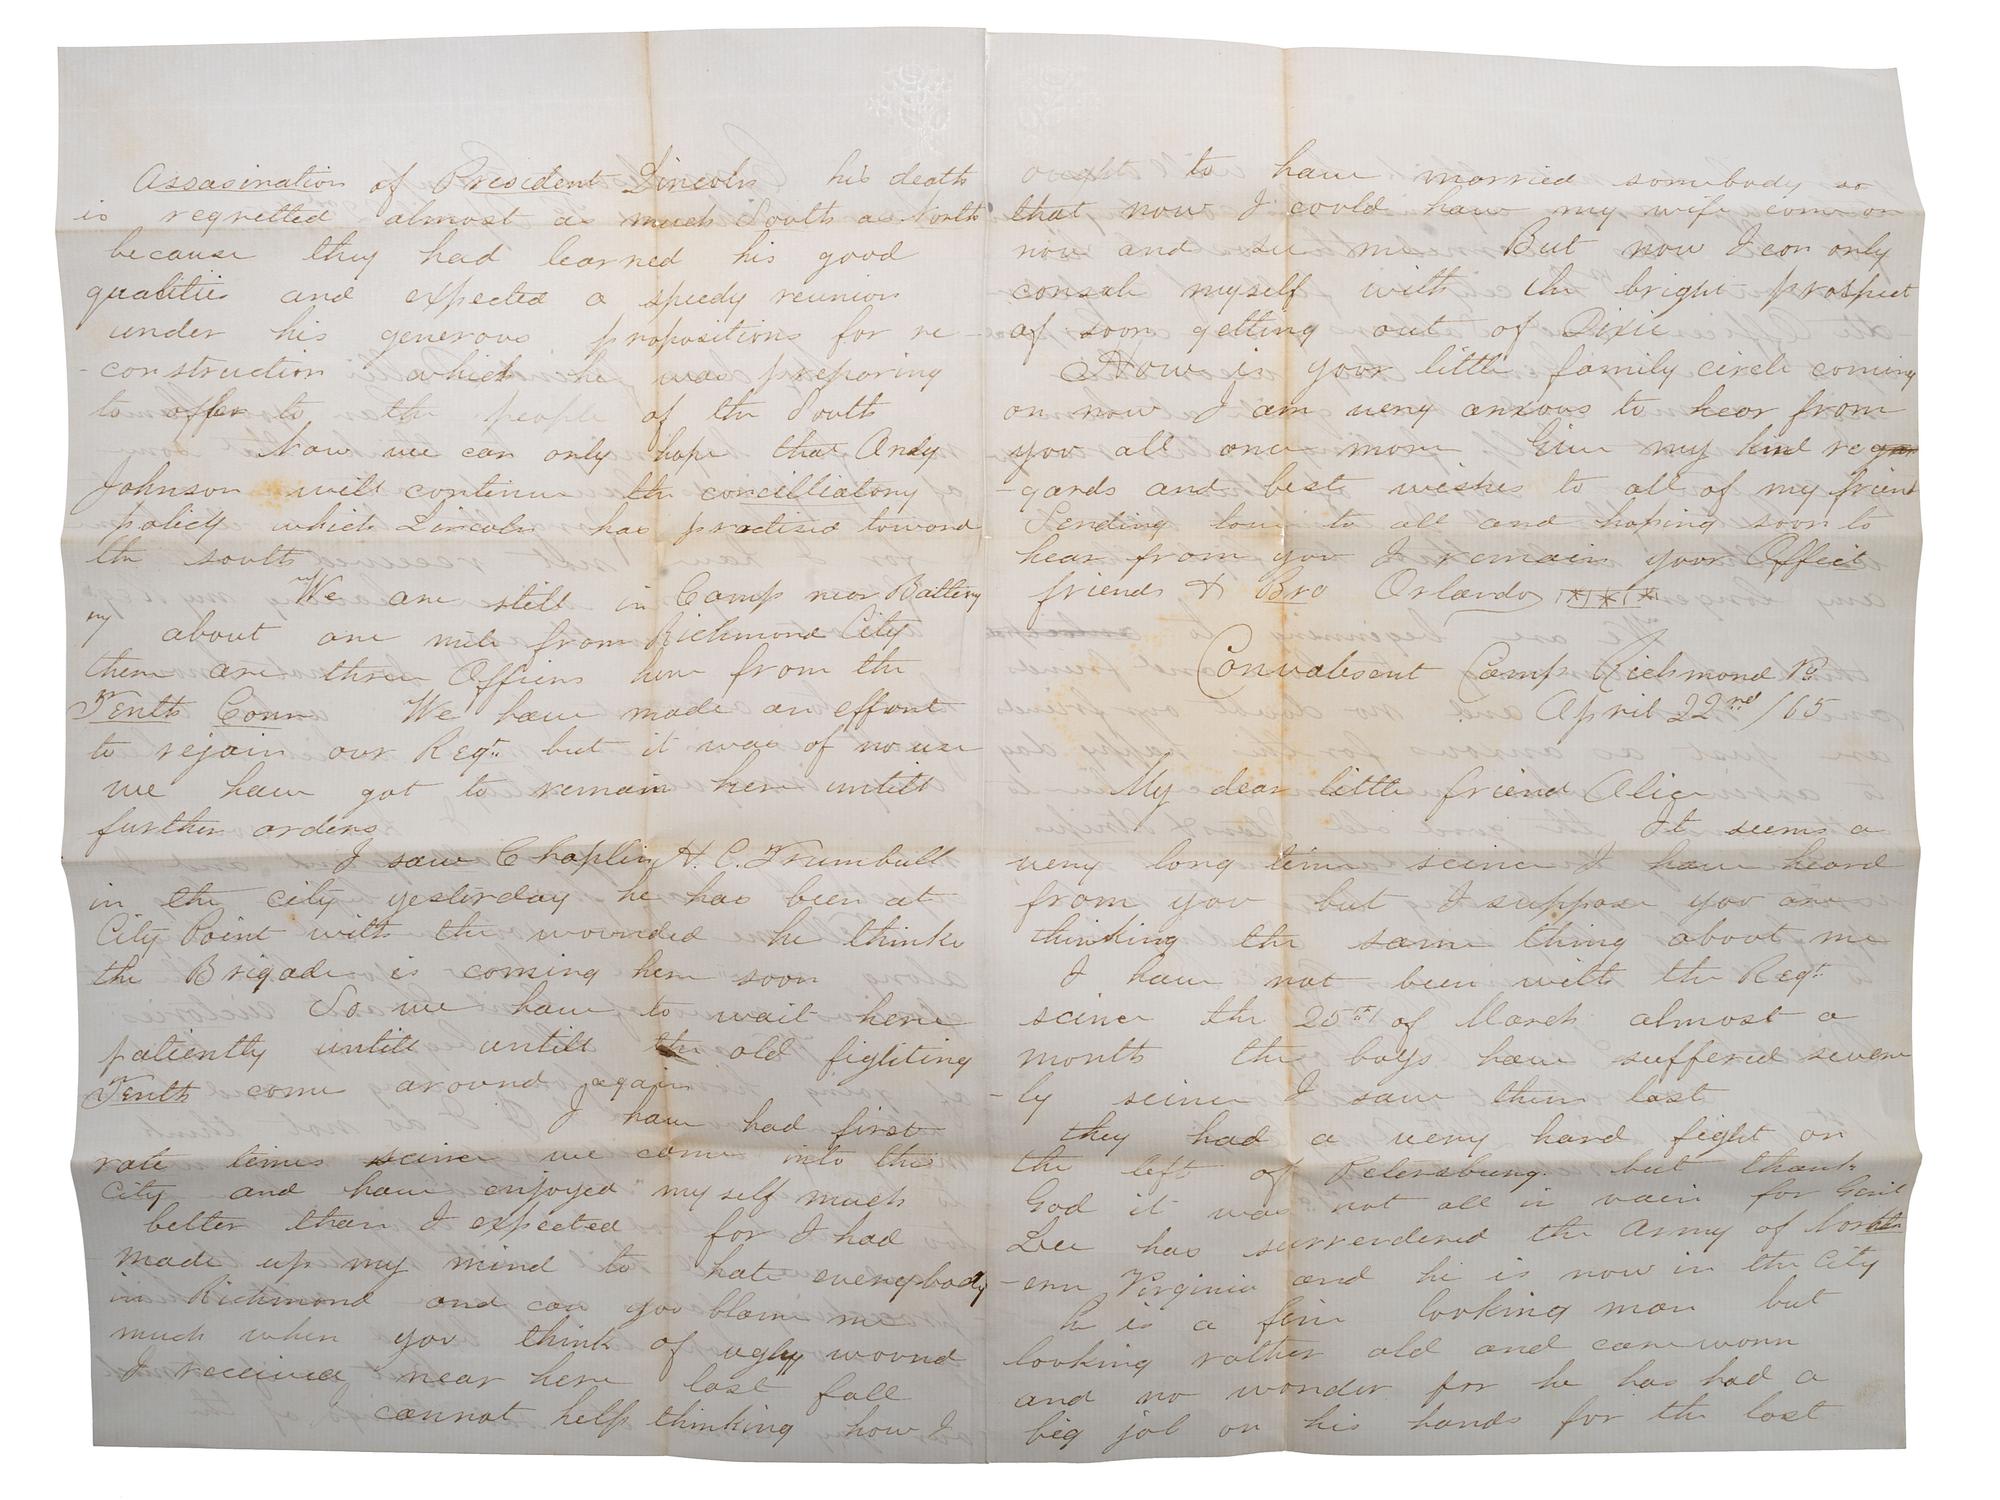 Assasination of President Lincoln his death
is regretted almost as much South as North
because they had learned his good
qualities and expected a speedy reunion
under his generous propositions for re-
-construction which he was preparing
to offer to the people of the South
Now we can only hope that Andy
Johnson will continue the concilliatory
policy which Lincoln has practised toward
the south
We are still in Camp near Battery
about one mile from Richmond City
there are three Officers here from the
Tenth Conn We have made an effort
to rejoin our Regt. but it was of no use
we have got to remain here untill
further orders
I saw Chaplin H. C. Trumbull
in the city yesterday he has been at
City Point with the wounded he thinks
the Brigade is coming here soon
So we have to wait here
patiently untill untill the old fighting
Tenth come around again
I have had first
rate times scince we came into the
City and have enjoyed my self much
better than I expected for I had
made up my mind to hate everybody
in Richmond and can you blame me
much when you think of ugly wound
I received near here last fall
I cannot help thinking how I
ought to have married somebody so
that now I could have my wife come on
now and see me But now I can only
console myself with the bright prospect
of soon getting out of Dixie
How is your little family circle coming
on now I am very anxous to hear from
you all once more Give my kind re
-gards and best wishes to all of my friend
Sending love to all and hoping soon to
hear from you I remain your Affect
friends & Bro Orlando
Convalesent Camp Richmond Va
April 22nd /65
My dear little friend Alice
It seems a
very long time scince I have heard
from you but I suppose you are
thinking the same thing about me
I have not been with the Regt.
scince the 25th of March almost a
month the boys have suffered severe
-ly scince I saw them last
they had a very hard fight on
the left of Petersburg. but thank
God it was not all in vain for Genl
Lee has surrendered the Army of North
-ern Virginia and he is now in the City
he is a fine looking man but
looking rather old and careworn
and no wonder for he has had a
big job on his hands for the last